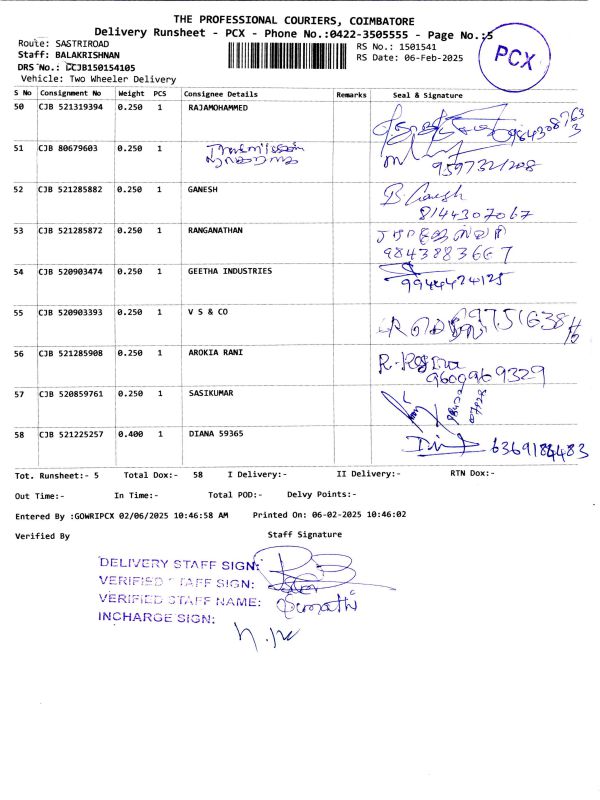 THE PROFESSIONAL COURIERS, COIMBATORE
Delivery Runsheet - PCX - Phone No.:0422-3505555 - Page No.:5
PCX
Route: SASTRIROAD
RS No.: 1501541
Staff: BALAKRISHNAN
RS Date: 06-Feb-2025
DRS No.: DCJB150154105
Vehicle: Two Wheeler Delivery
S No Consignment No Weight PCS Consignee Details Remarks Seal & Signature
50 CJB 521319394 0.250 1 RAJAMOHAMMED
51 CJB 80679603 0.250 1
9597321208
52 CJB 521285882 0.250 1 GANESH B. Ganesh
8144307067
53 CJB 521285872 0.250 1 RANGANATHAN
9843883667
54 CJB 520903474 0.250 1 GEETHA INDUSTRIES
9944424125
55 CJB 520903393 0.250 1 V S & CO
56 CJB 521285908 0.250 1 AROKIA RANI
9600969329
57 CJB 520859761 0.250 1 SASIKUMAR
58 CJB 521225257 0.400 1 DIANA 59365
Tot. Runsheet:- 5 Total Dox:- 58 I Delivery:- II Delivery:- RTN Dox:-
Out Time:- In Time:- Total POD:- Delvy Points:-
Entered By :GOWRIPCX 02/06/2025 10:46:58 AM Printed On: 06-02-2025 10:46:02
Verified By Staff Signature
DELIVERY STAFF SIGN:
VERIFIED STAFF SIGN:
VERIFIED STAFF NAME:
INCHARGE SIGN: